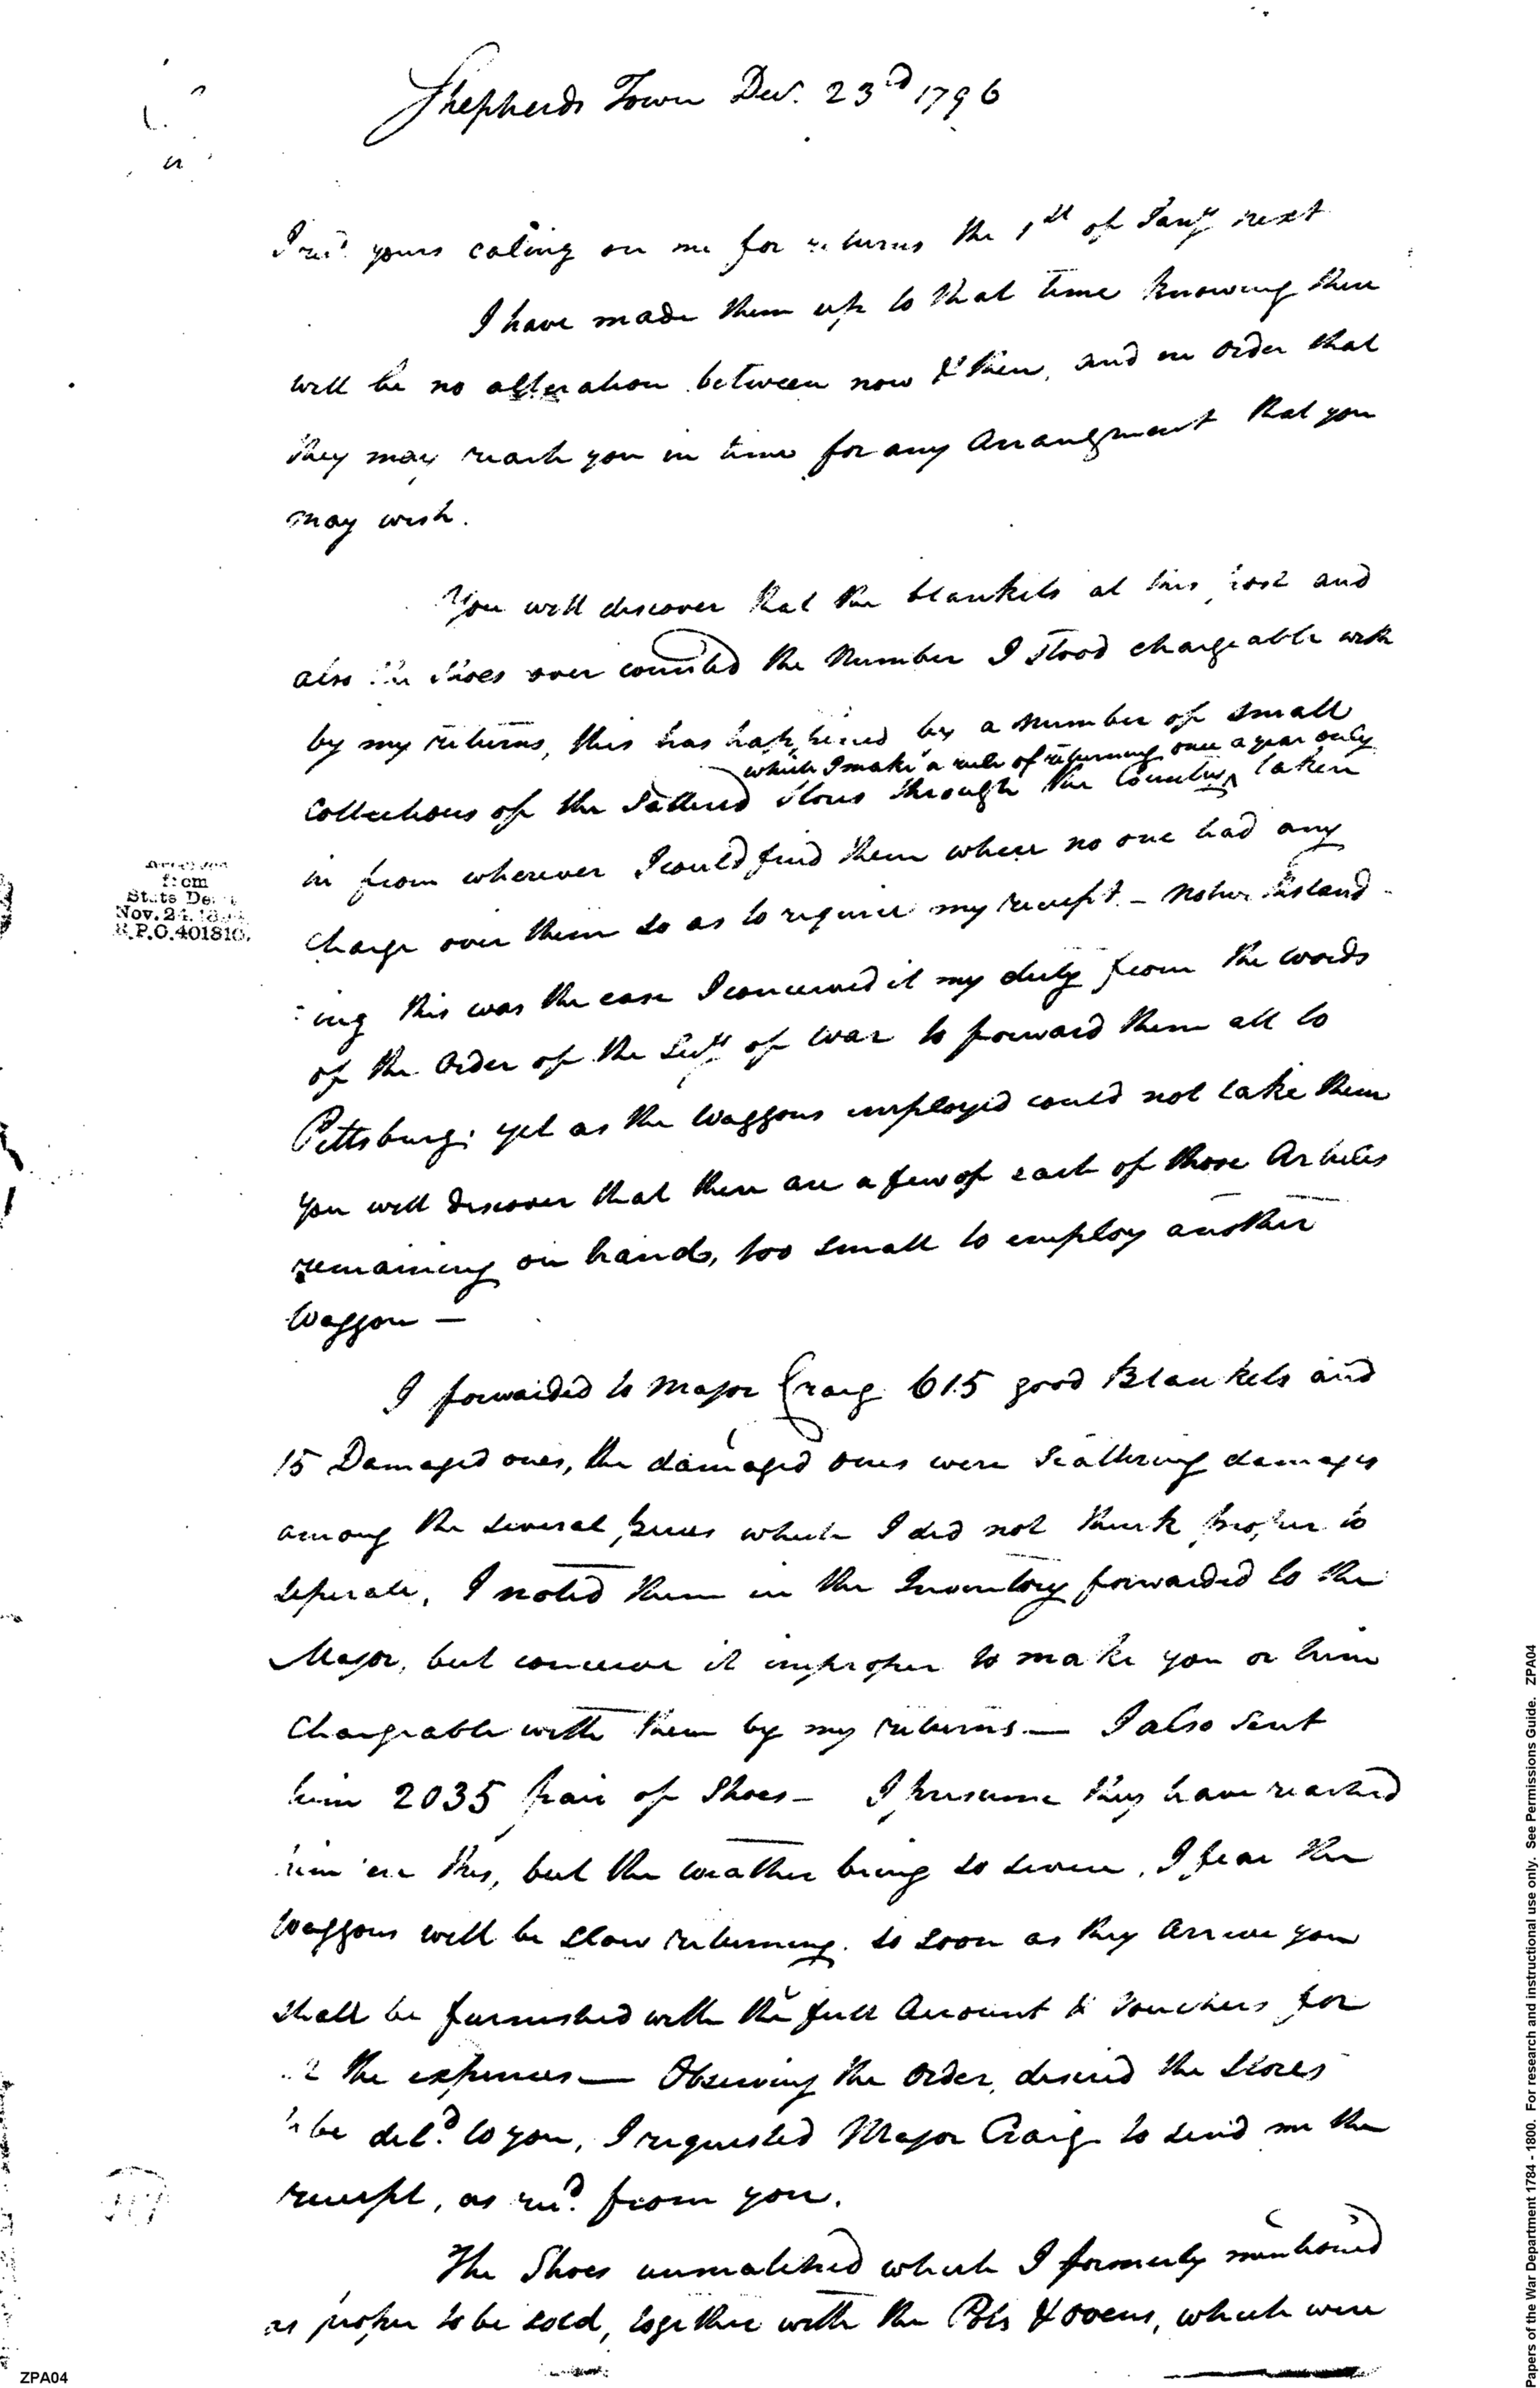 Shepherds Town Dec. 23d 1796
I recd. yours caling on me for returns the 1st of Jany next
I have made them up to that time knowing there
will be no alteration between now & then, and in order that
they may reach you in time for any Arrangment that you
may wish.
You will discover that the blankets at this post and
also the Shoes over counted the Number I stood chargeable with
by my returns, this has happened by a number of small
which I make a rule of returning once a year only
Collections of the Scattered Stores through the Country taken
in from wherever I could find them where no one had any
charge over them so as to require my receipt. - Notwithstand
ing this was the case I conceived it my duty from the words
of the Order of the Secy of War to forward them all to
Pittsburg; yet as the Waggons employed could not take them
you will discover that there are a few of each of those Articles
remaining on hands, too small to employ another
Waggon -
I forwarded to Major Craig 615 good Blankets and
15 Damaged ones, the damaged ones were Scattering damages
among the several pieces which I did not think proper to
seperate, I noted them in the Inventory forwarded to the
Major, but conceive it improper to make you or him
Chargeable with them by my returns - I also sent
him 2035 pair of Shoes - I presume they have reached
him 'ere this, but the weather being so severe, I fear the
Waggons will be slow returning. so soon as they Arrive you
shall be furnished with the full Account & Vouchers for
the expences - Observing the Order, desired the Stores
to be deld. to you, I requested Major Craig to send me the
receipt, as recd. from you.
The Shoes unmatched which I formerly mentioned
as proper to be sold, together with the Pots & ovens, which were
from
State De
Nov. 24. 18
R.P.O. 401810.
ZPA04
Papers of the War Department 1784 - 1800. For research and instructional use only. See Permissions Guide. ZPA04